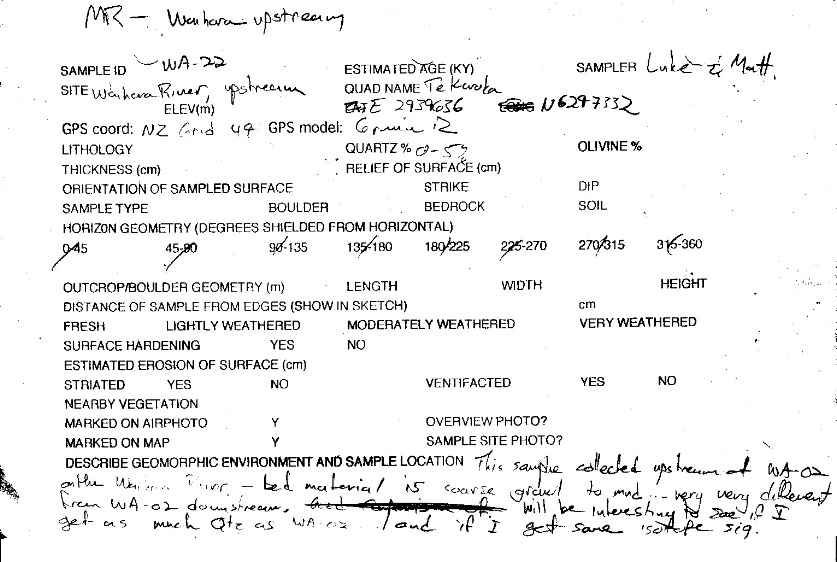 MR - Waihara upstream
SAMPLE ID WA-22 ESTIMATED AGE (KY) SAMPLER Luke & Matt.
SITE Waihara River, upstream QUAD NAME Te Kuota
ELEV(m) E 2939636 N6297332
GPS coord: NZ Grid 49 GPS model: Garmin 12
LITHOLOGY QUARTZ % 0-5? OLIVINE %
THICKNESS (cm) RELIEF OF SURFACE (cm)
ORIENTATION OF SAMPLED SURFACE STRIKE DIP
SAMPLE TYPE BOULDER BEDROCK SOIL
HORIZON GEOMETRY (DEGREES SHIELDED FROM HORIZONTAL)
0-45 45-90 90-135 135-180 180-225 225-270 270-315 315-360
OUTCROP/BOULDER GEOMETRY (m) LENGTH WIDTH HEIGHT
DISTANCE OF SAMPLE FROM EDGES (SHOW IN SKETCH) cm
FRESH LIGHTLY WEATHERED MODERATELY WEATHERED VERY WEATHERED
SURFACE HARDENING YES NO
ESTIMATED EROSION OF SURFACE (cm)
STRIATED YES NO VENTIFACTED YES NO
NEARBY VEGETATION
MARKED ON AIRPHOTO Y OVERVIEW PHOTO?
MARKED ON MAP Y SAMPLE SITE PHOTO?
DESCRIBE GEOMORPHIC ENVIRONMENT AND SAMPLE LOCATION This sample collected upstream of WA-02
on the Waihara River - bed material is coarse gravel to mud... very very different
from WA-02 downstream. will be interesting to see if I
get as much Qtz as WA-02 / and if I get same isotope sig.